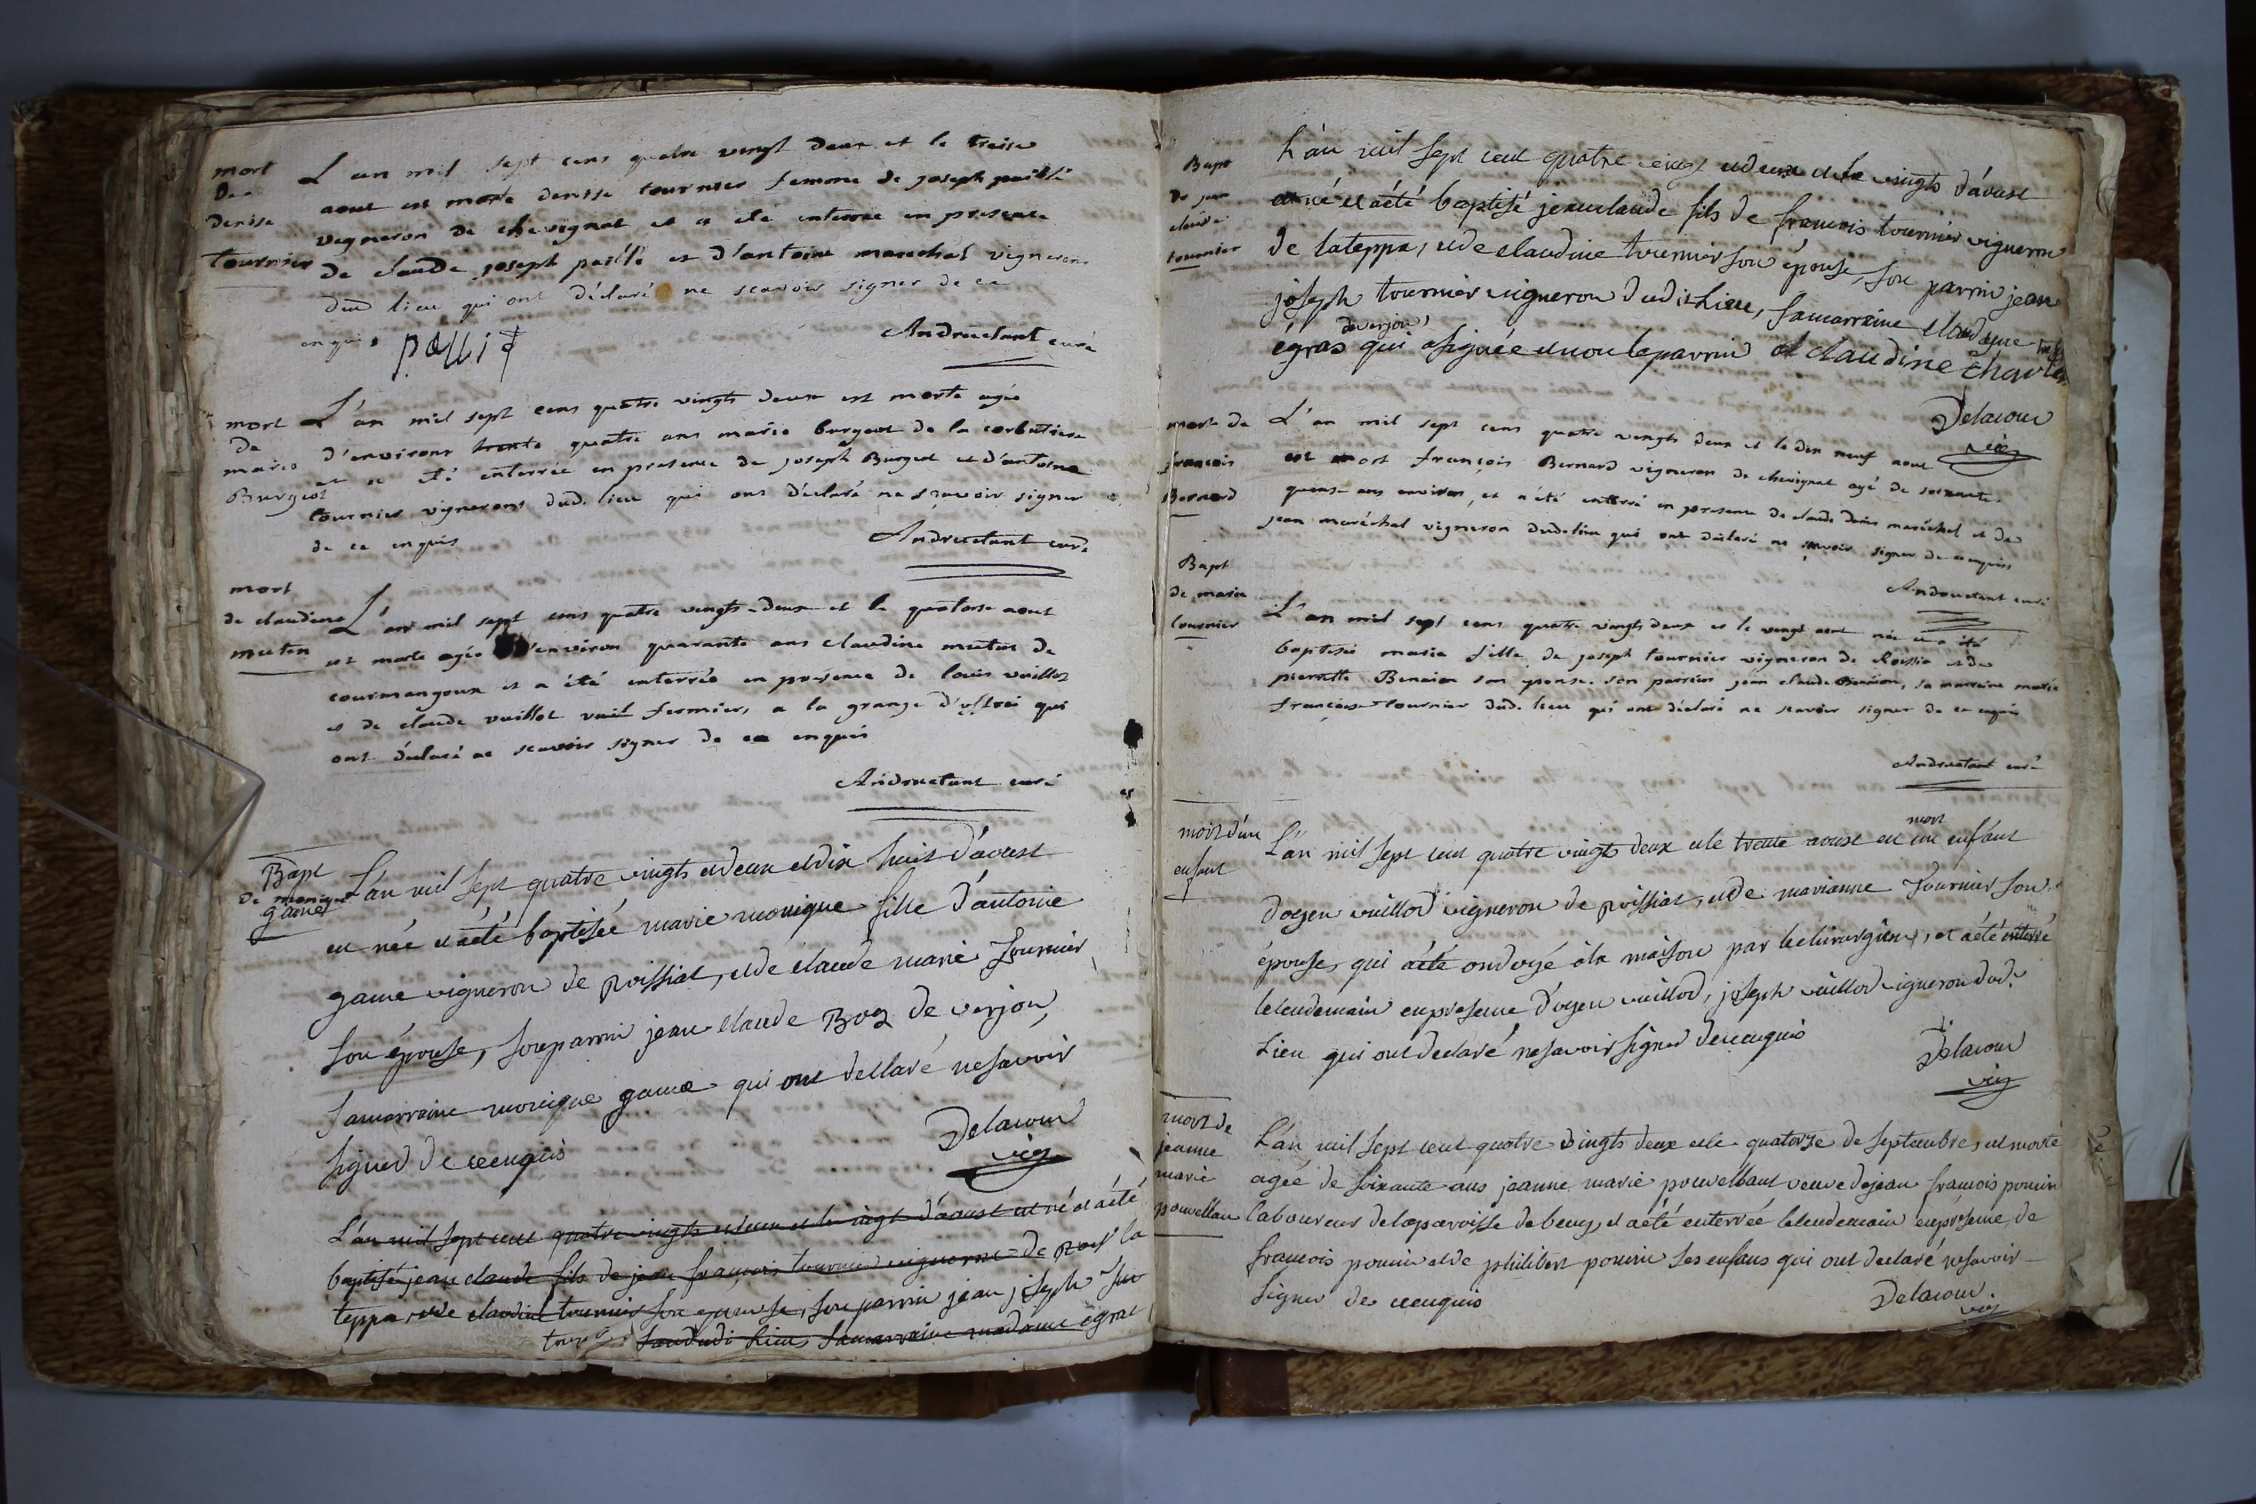 mort
De
denise
tournier
L'an mil sept cens quatre vingt deux et le treise
aout est morte denise tournier femme de joseph paillé
vegneron de chevignat et a été enterrée en presence
de claude joseph paillé et d'antoine marechal vignerons
dud lieu qui ont déclaré ne scavoir signer de ce
enquis
Andructant curé
mort
De
marie
Burgeot
L'an mil sept cens quatre vingts deux est morte agée
d'environs trente quatre ans marie burgeot de la corbatiere
et a été enterrée en presence de joseph Burgeot et d'antoine
tournier vignerons dud. lieu qui ont déclaré ne scavoir signer
de ce enquis
Andructant curé
mort
de claudine
mutin
L'an mil sept cens quatre vingts-deux et le quatorse aout
est morte agée d'environ quarante ans claudine mutin de
courmangoux et a été enterrée en présence de louis vuillot
et de claude vuillot fermier, a la grange qui
ont déclaré ne scavoir signer de ce enquis
Andructant curé
Bapt
De monique
game
L'an mil sept quatre vingts et deux et dix huit d'avust
est née et a été baptisée marie monique fille d'antoine
game vigneron de poissiat, et de claude marie tournier
son épouse, son parrin jean claude Buoz de verjon,
sa marraine monique game qui ont dellaré ne savoir
signer de ce enquis
Delacour
vic
L'an mil sept cent quatre vingts et deux et le vingt d'avust est né et a été
baptisé jean claude fils de jean francois tournier vigneron de la
teppe, et de claudine tournier son epouse, son parrin jean joseph
dudi lieu, sa marraine madame égras
Bapt
De jean
claude
tournier
L'an mil sept cent quatre vingt et deux et le vingts d'avust
est né et a été baptisé jean claude fils de francois tournier vigneron
de la teppe, et de claudine tournier son épouse, son parrin jean
joseph tournier vigneron dudit Lieu, sa marraine claudine
de verjon,
égras qui a signée et non le parrin claudine charles
Delacour
vic
morte de
francois
Bernard
L'an mil sept cens quatre vingts deux et le dix neuf aout
est mort francois Bernard vigneron de chevignat agé de soixante
quense ans environ, et a été enterré en presence de claude denis maréchal et de
jean maréchal vigneron dudelieu qui ont déclaré ne scavoir signer de ce enquis
Andructant curé
Bapt
de marie
tournier
L'an mil sept cens quatre vingts deux et le vingt aout née et a été
baptisée marie fille de joseph tournier vigneron de Roissia et de
pierrette Benaion son epouse. son parrein jean claude Benaion, sa marreine marie
francoise tournier dud. lieu qui ont déclaré ne scavoir signer de ce enquis
Andructant curé
mort d'un
enfant
mort
L'an mil sept cent quatre vingts deux et le trente avust est un enfant
d'oyen vuillod vigneron de poissiat, et de marianne tournier son
épouse, qui a été ondoyé à la maison par le chirurgien, et a été enterré
le lendemain en presence d'oyen vuillod, joseph vuillod vigneron dud.
Lieu qui ont declaré ne savoir signer de ce enquis
Delacour
vic
mort de
jeanne
marie
pouvellan
L'an mil sept cent quatre vingts deux et le quatorze de septembre, est morte
agée de soixante ans jeanne marie pouvellant veuve de jean francois poncin
laboureur de la paroisse de beny, et a été enterrée le lendemain en presence de
francois poncin et de philibert poncin ses enfans qui ont declaré ne savoir
signer de ce enquis
Delacour.
vic